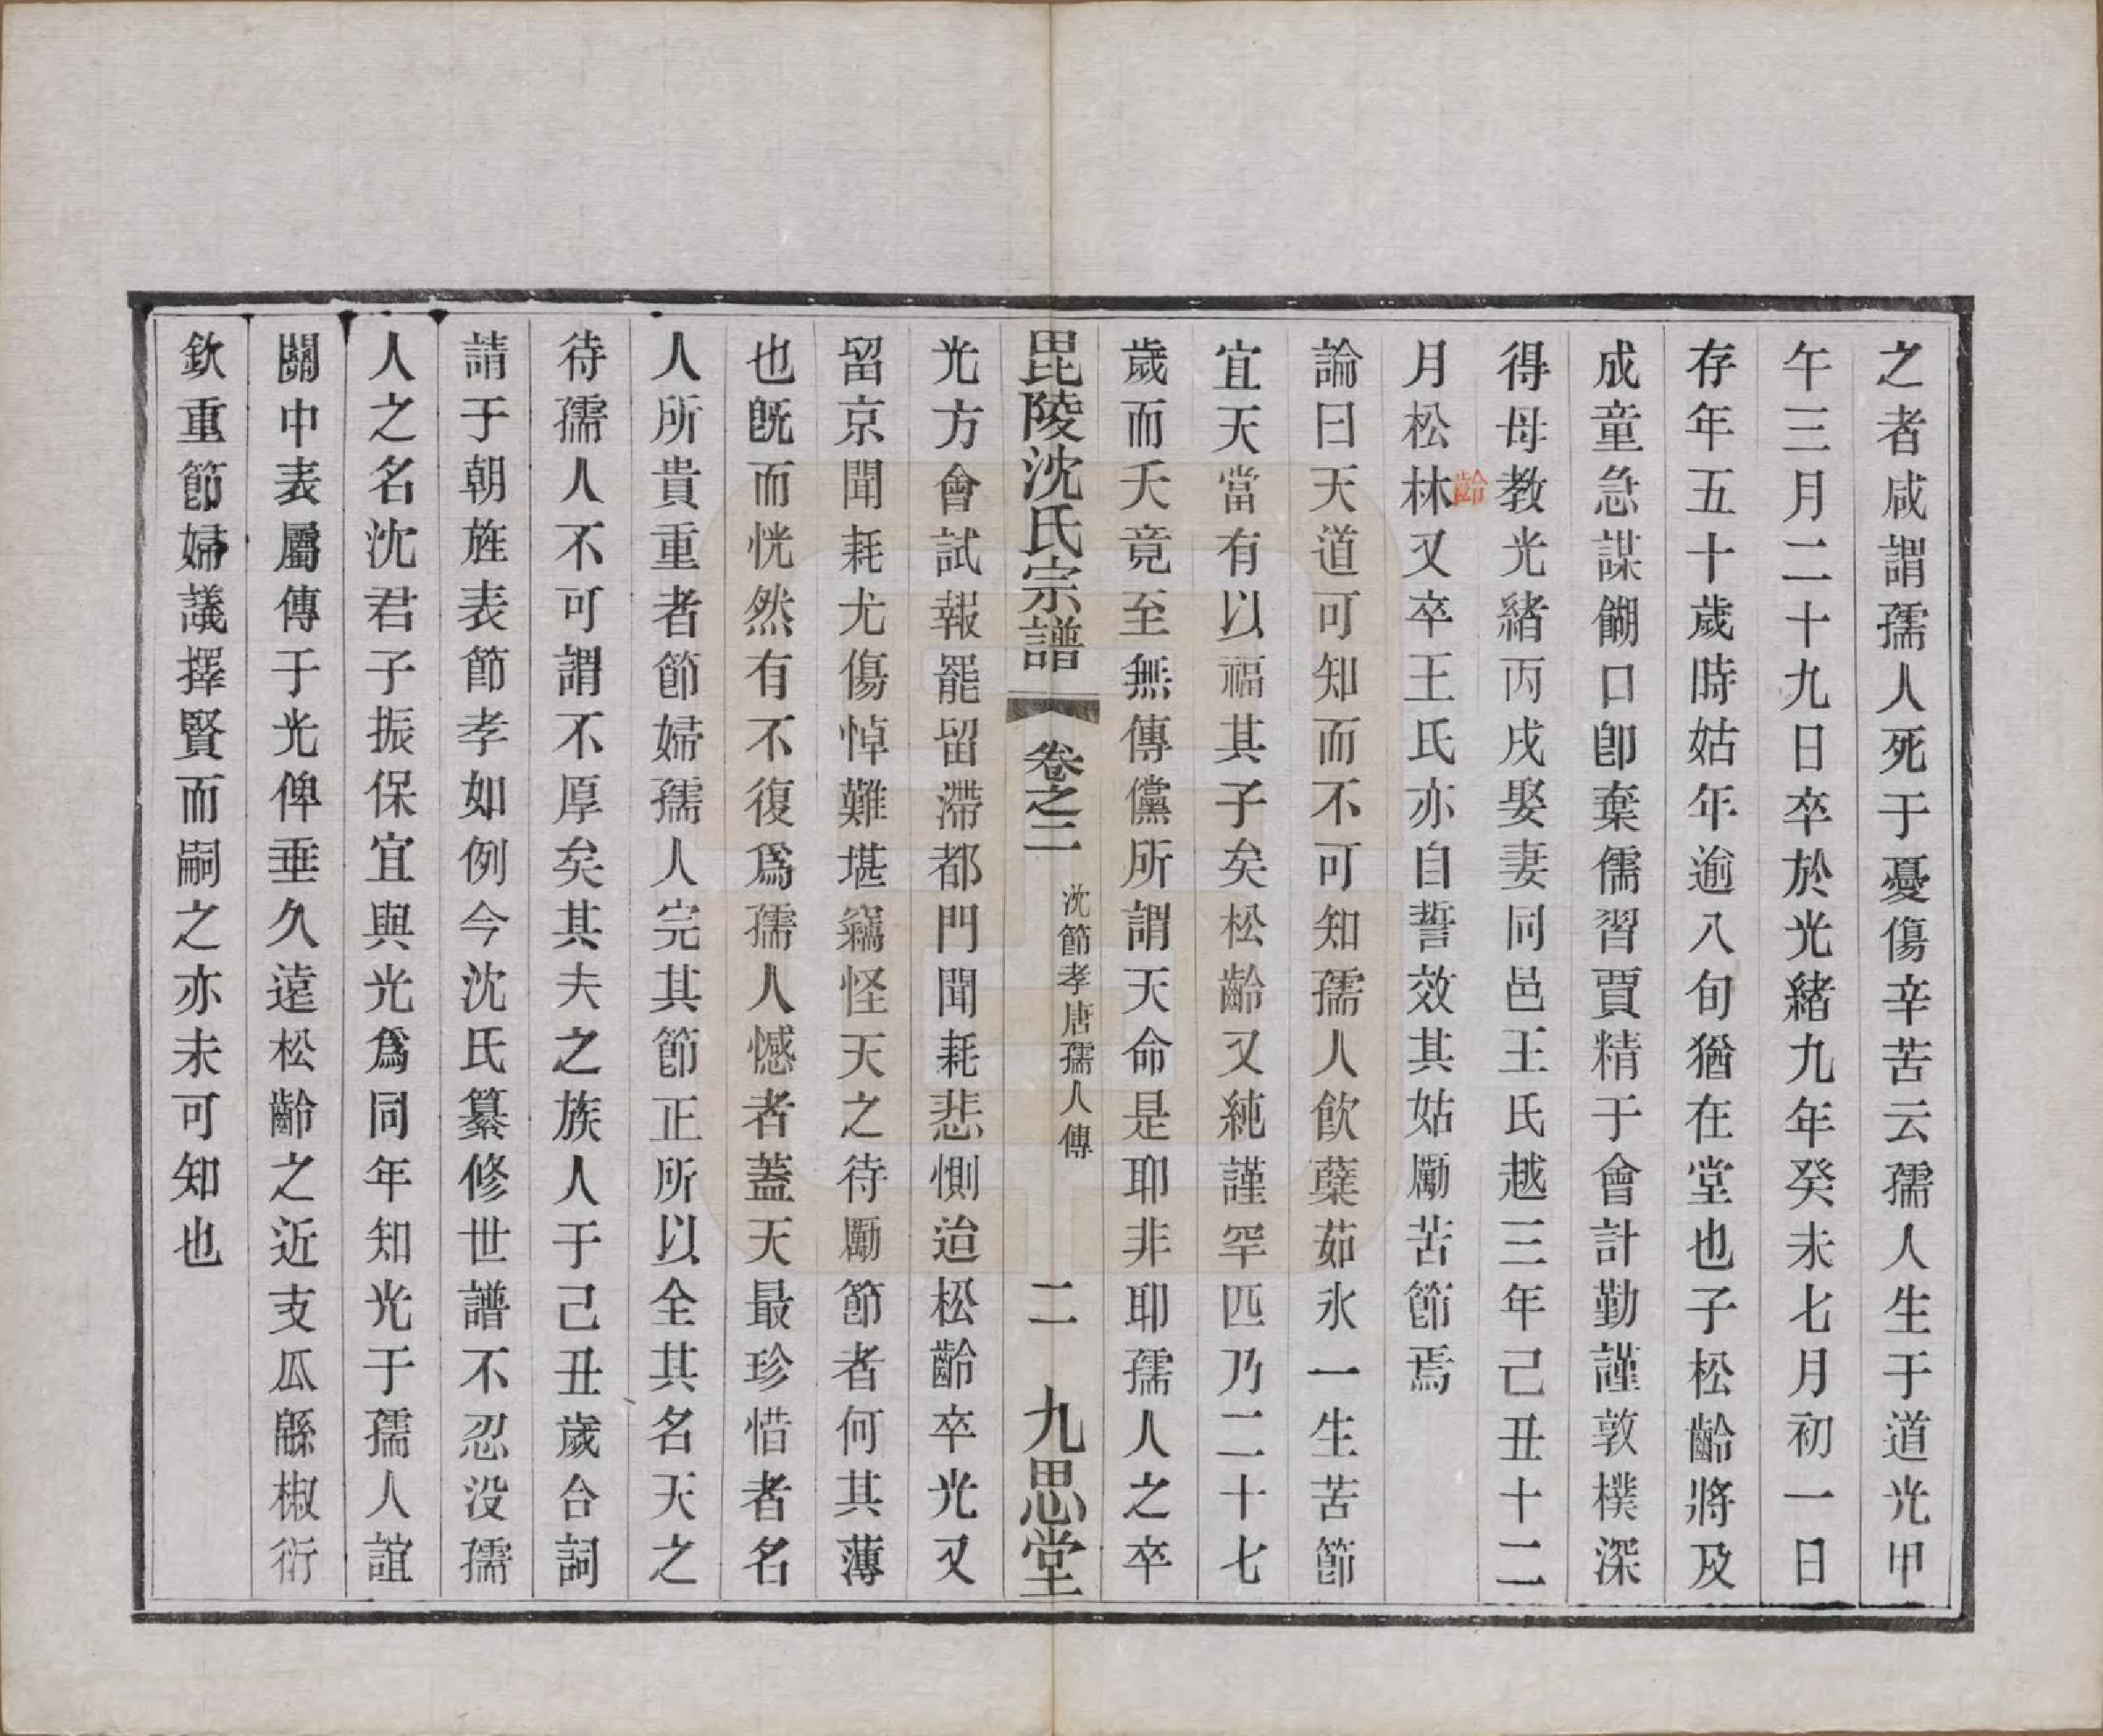 之者咸謂孺人死于憂傷辛苦云孺人生于道光甲
午三月二十九日卒於光緒九年癸未七月初一日
存年五十歲時姑年逾八旬猶在堂也子松齡將及
成童急謀餬口卽棄儒習賈精于會計勤謹敦樸深
得母教光緒丙戌娶妻同邑王氏越三年己丑十二
齡
月松林又卒王氏亦自誓效其姑勵苦節焉
論曰天道可知而不可知孺人飮蘗茹氷一生苦節
宜天當有以福其子矣松齡又純謹罕匹乃二十七
歲而夭竟至無傳儻所謂天命是耶非耶孺人之卒
毘陵沈氏宗譜 卷之二 沈節孝唐孺人傳 二 九思堂
光方會試報罷留滯都門聞耗悲惻迨松齡卒光又
留京聞耗尤傷悼難堪竊怪天之待勵節者何其薄
也旣而恍然有不復爲孺人憾者蓋天最珍惜者名
人所貴重者節婦孺人完其節正所以全其名天之
待孺人不可謂不厚矣其夫之族人于己丑歲合詞
請于朝旌表節孝如例今沈氏纂修世譜不忍没孺
人之名沈君子振保宜與光爲同年知光于孺人誼
關中表屬傳于光俾垂久遠松齡之近支瓜緜椒衍
欽重節婦議擇賢而嗣之亦未可知也